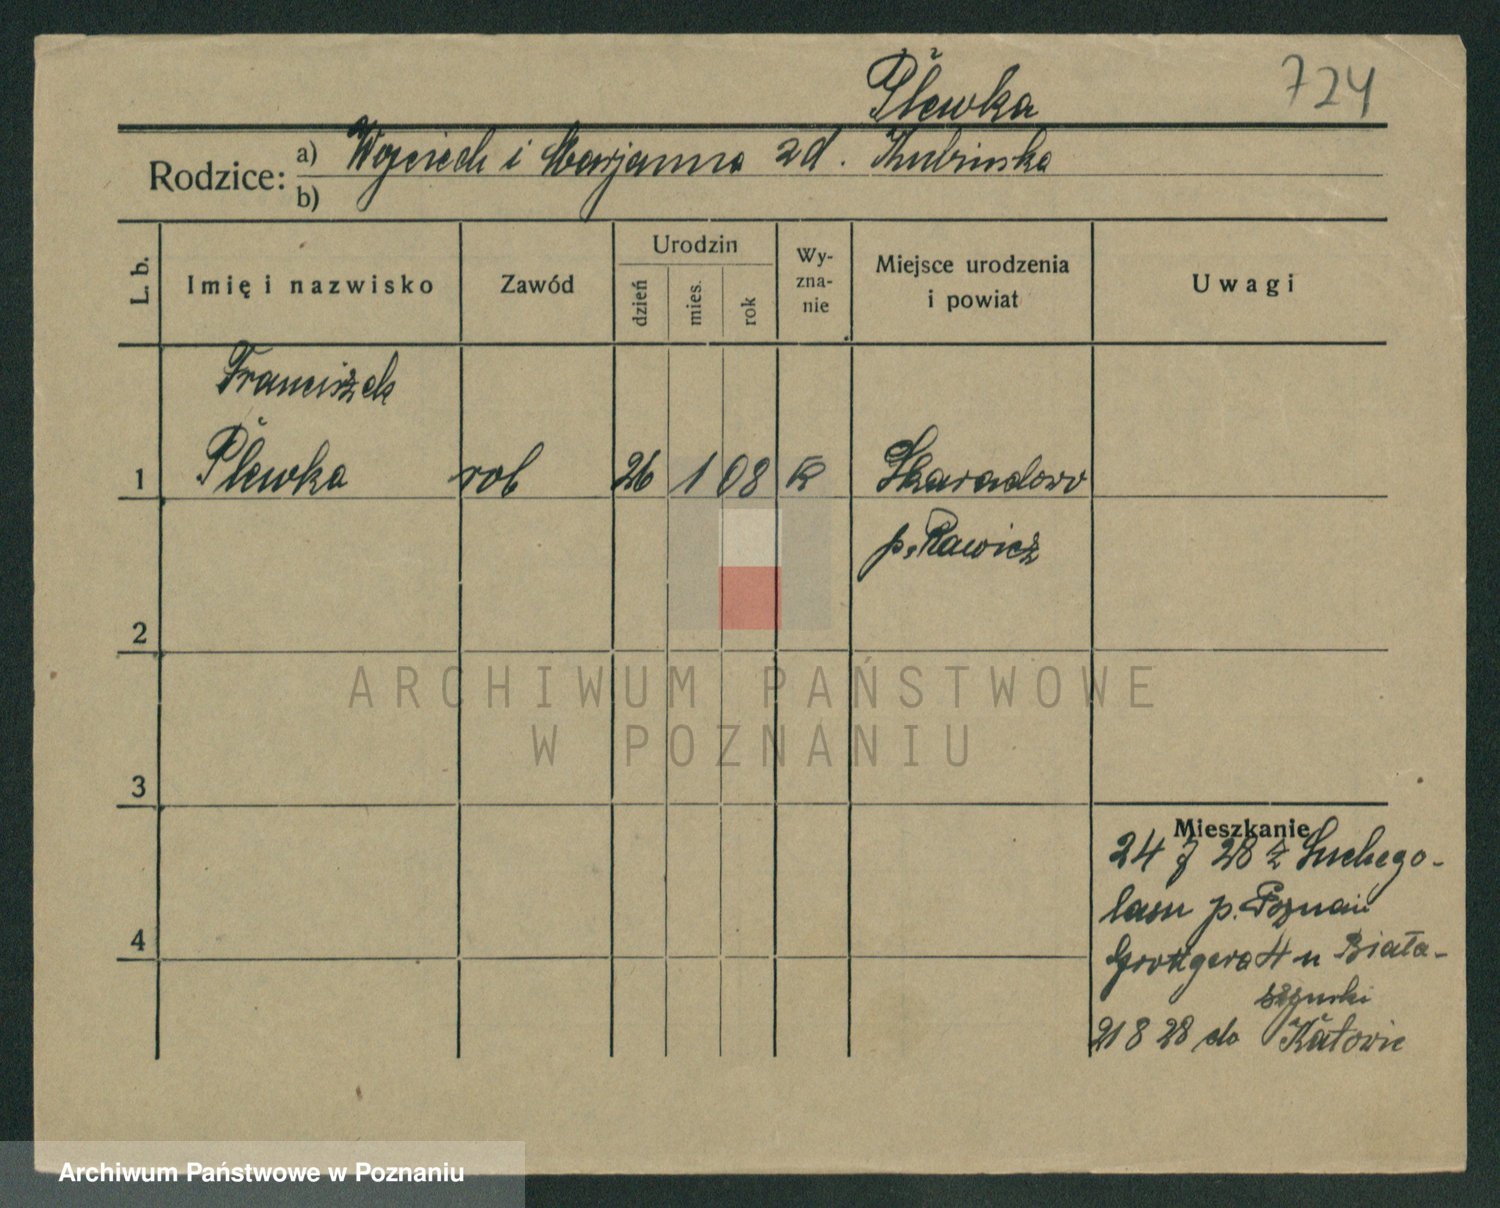 Plewka
724
Rodzice: a) Wojciech i Marjanna zd. Kubinska
b)
L. b. Imię i nazwisko Zawód Urodzin dzień mies. rok Wy-zna-nie Miejsce urodzenia i powiat Uwagi
Franciszek
1 Plewka rob 26 1 08 K Skaradowo
p. Rawicz
2
ARCHIWUM PAŃSTWOWE
W POZNANIU
3
Mieszkanie
24 7 28 z Suchego-
lasu p. Poznań
Grottgera 4 u Biała-
szurski
4
21 8 28 do Katowic
Archiwum Państwowe w Poznaniu